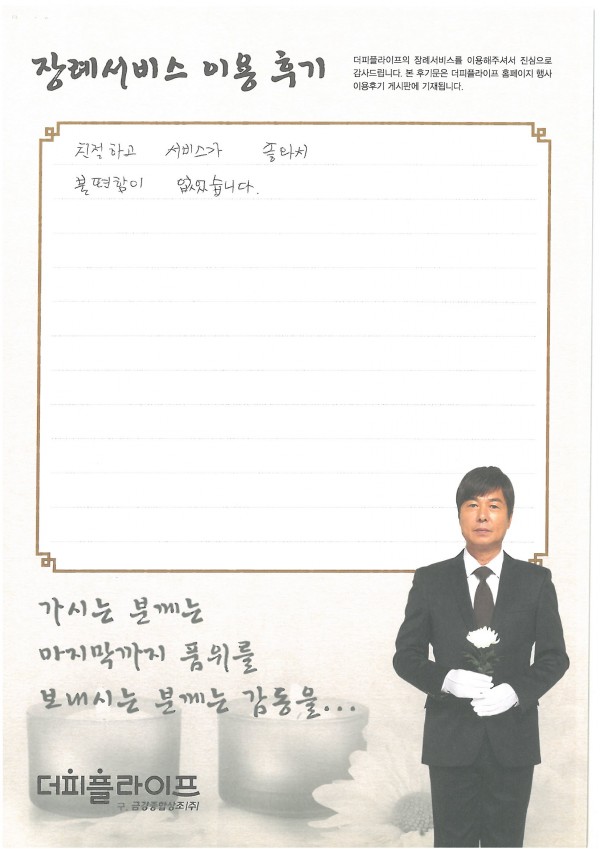 장례서비스 이용 후기
더피플라이프의 장례서비스를 이용해주셔서 진심으로
감사드립니다. 본 후기문은 더피플라이프 홈페이지 행사
이용후기 게시판에 기재됩니다.
친절하고 서비스가 좋아서
불편함이 없었습니다.
가시는 분께는
마지막까지 품위를
보내시는 분께는 감동을...
더피플라이프
구. 금강종합상조(주)